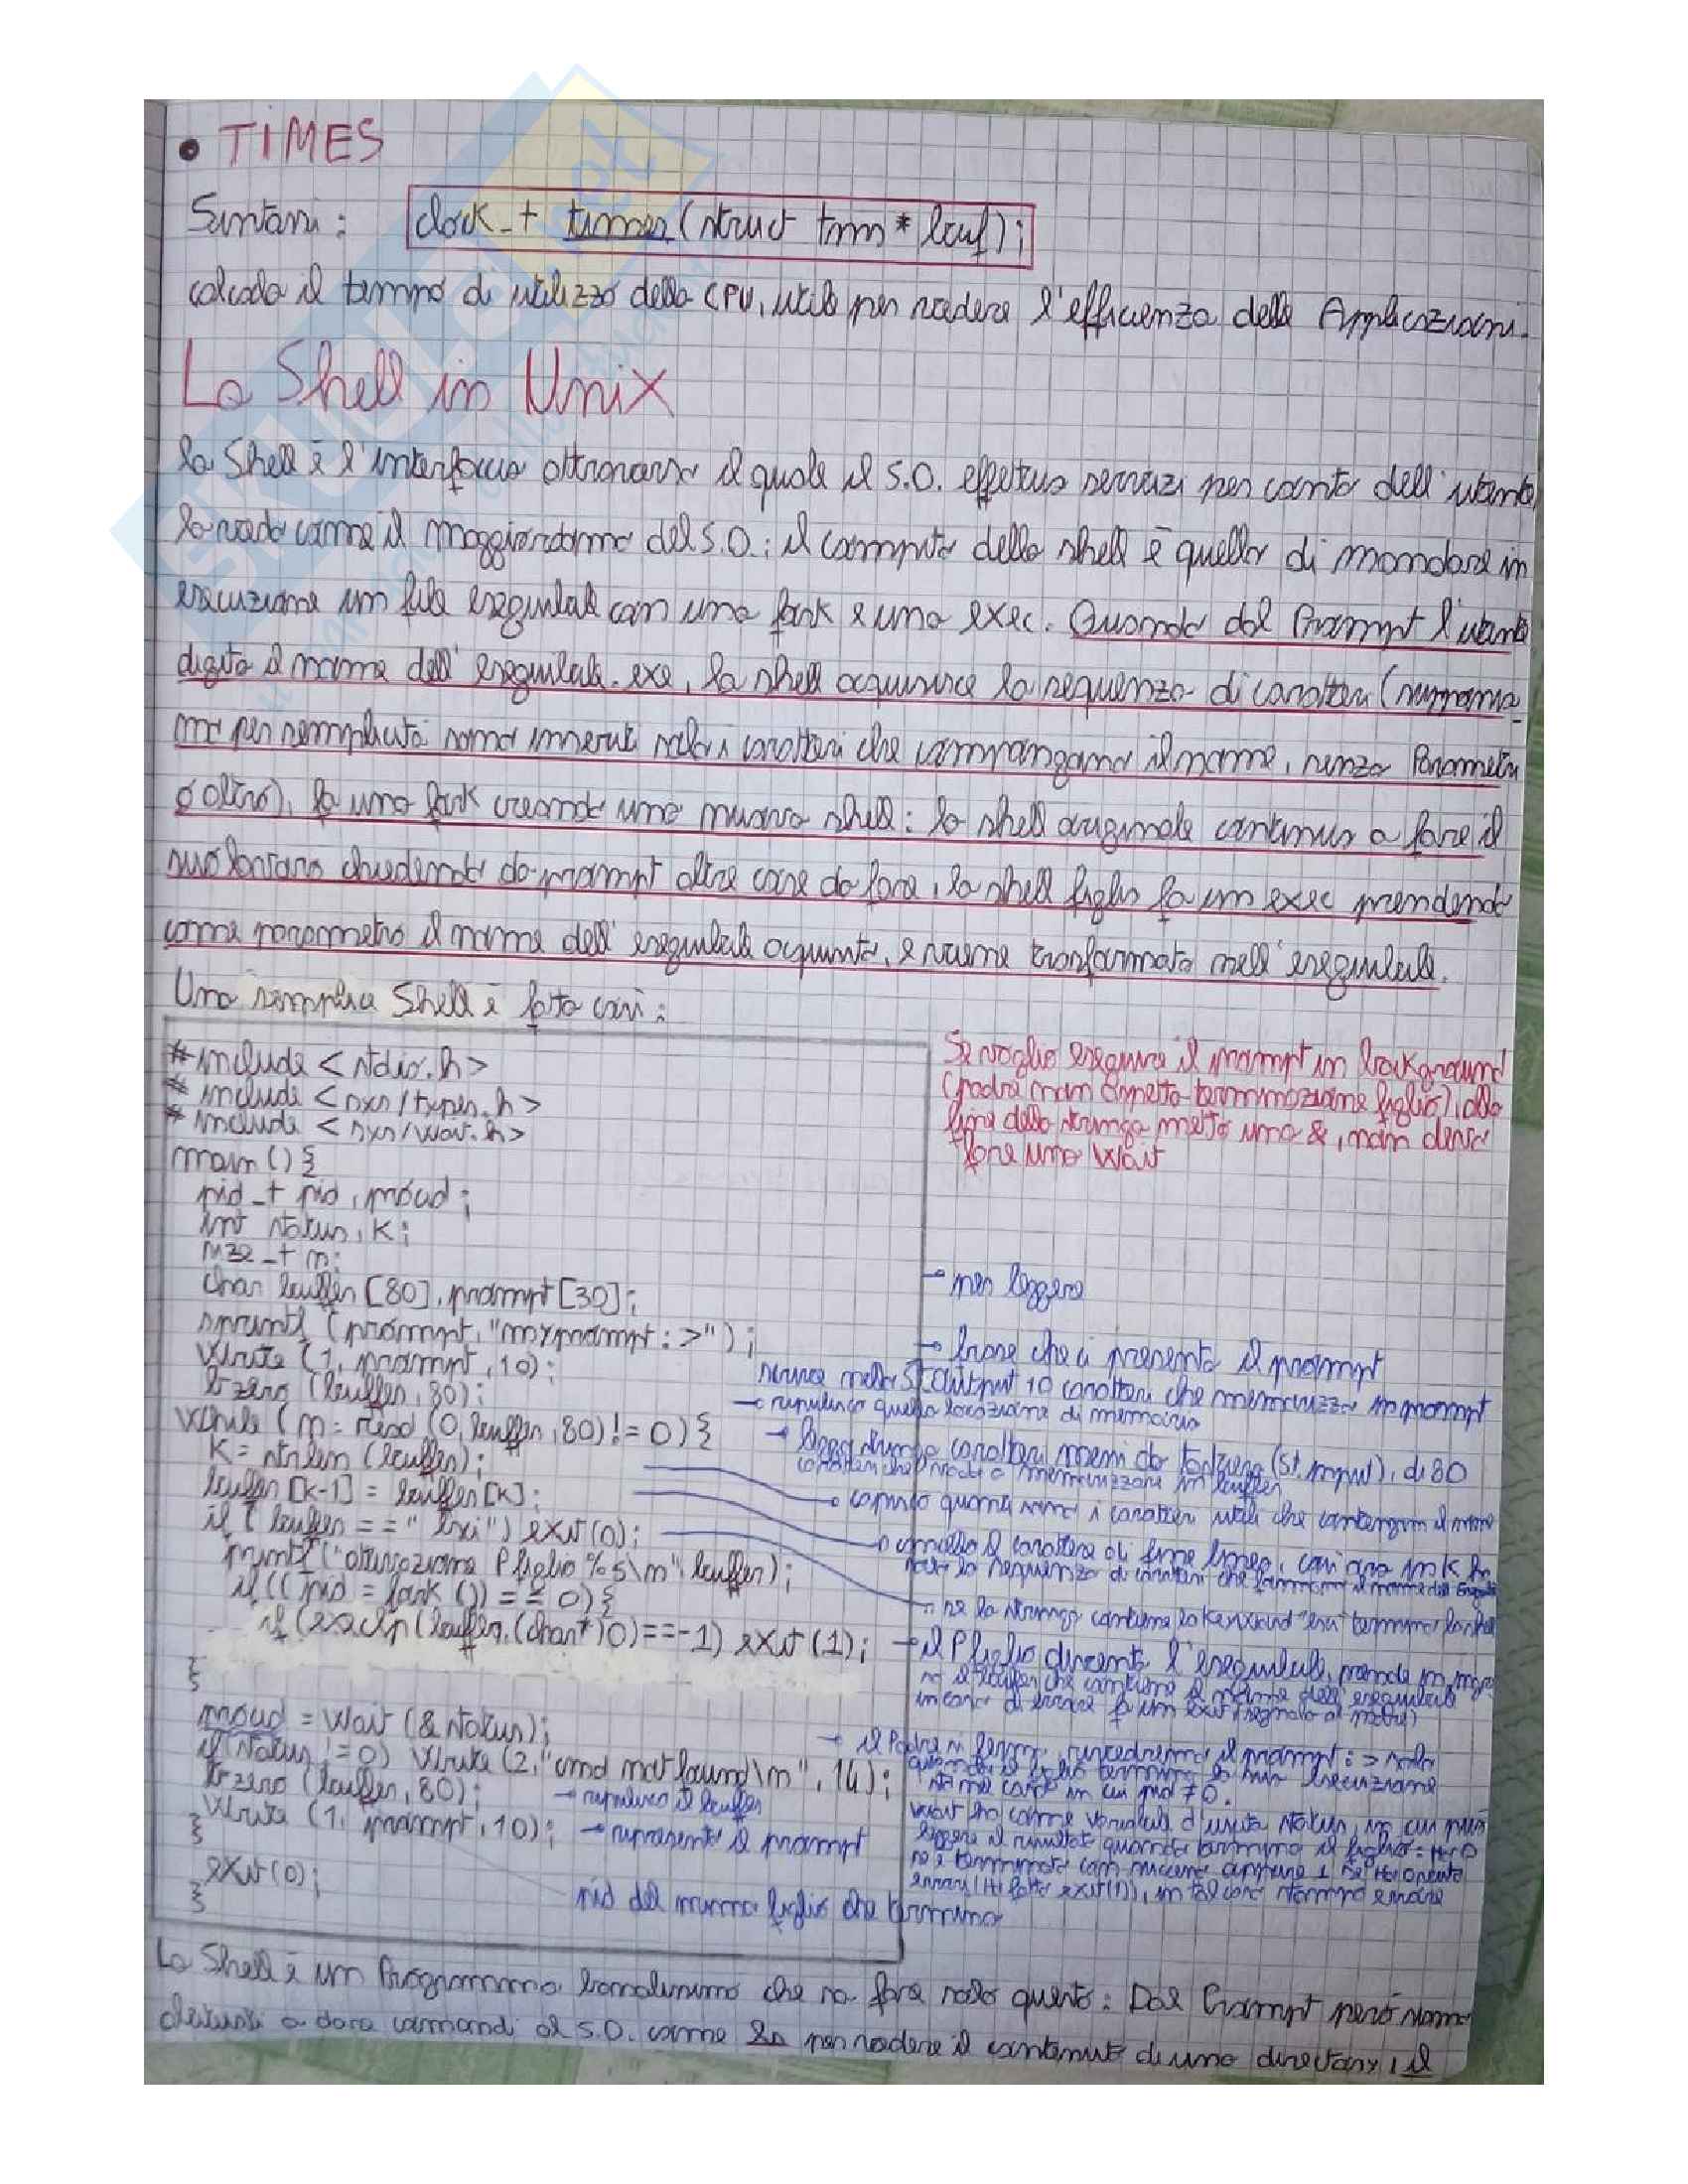 • TIMES
Sintassi: clock_t times(struct tms * buf);
calcola il tempo di utilizzo della CPU, utile per vedere l'efficienza delle Applicazioni.
La Shell in Unix
la Shell è l'interfaccia attraverso il quale il S.O. effettua servizi per conto dell'utente
la vedo come il maggiordomo del S.O.: il compito della shell è quello di mandare in
esecuzione un file eseguibile con una fork e una exec. Quando dal Prompt l'utente
digita il nome dell'eseguibile.exe, la shell acquisisce la sequenza di caratteri (supponia-
mo per semplicità siano inseriti solo i caratteri che compongano il nome, senza Parametri
o altro), fa una fork creando una nuova shell: la shell originale continua a fare il
suo lavoro chiedendo da prompt altre cose da fare, la shell figlio fa un exec prendendo
come parametro il nome dell'eseguibile acquisito, e viene trasformato nell'eseguibile.
Una semplice Shell è fatta così:
#include <stdio.h>
#include <sys/types.h>
#include <sys/wait.h>
main () {
pid_t pid,
int status, k;
size_t n;
char buffer [80], prompt [30];
sprintf (prompt, "myprompt:>");
write (1, prompt, 10);
bzero (buffer, 80);
while (n = read (0, buffer, 80) != 0) {
k = strlen (buffer);
buffer [k-1] = buffer [k];
if (buffer == "esci") exit(0);
printf ("attivazione P figlio %s\n" buffer);
if (( pid = fork ()) == 0) {
if (execlp (buffer, (char*) 0) == -1) exit (1);
}
= wait (& status);
if (status != 0) write (2, "cmd not found\n", 14);
bzero (buffer, 80);
write (1, prompt, 10);
}
exit (0);
}
Se voglio eseguire il prompt in background
(padre non aspetta terminazione figlio), alla
fine della stringa metto una &, non devo
fare una wait
→ per leggere
→ frase che ci presenta il prompt
scrive nello St. Output 10 caratteri che memorizza in prompt
→ ripulisco quella locazione di memoria
→ leggo stringa caratteri presi da tastiera (St. input), di 80
caratteri che vado a memorizzare in buffer
→ capisco quanti sono i caratteri utili che contengono il nome
→ cancello il carattere di fine linea, così ora in k ho
solo la sequenza di caratteri che formano il nome dell'
→ se la stringa contiene la keyword "esci" termino la shell
→ il P figlio diventa l'eseguibile, prende in
il buffer che contiene il nome dell'eseguibile
in caso di errore fa un exit (segnala al padre)
→ il Padre si ferma, rivedremo il prompt :> solo
quando il figlio termina la sua esecuzione
≠ 0.
wait ha come variabile d'uscita status, in cui può
leggere il risultato quando termina il figlio:
se è terminato con successo oppure 1 se
errori ( exit(1)), in tal caso stampo errore
→ ripulisco il buffer
→ ripresento il prompt
pid del processo figlio che termina
La Shell è un Programma banalissimo che sa fare solo questo: Dal Prompt però siamo
abituati a dare comandi al S.O. come ls per vedere il contenuto di una directory, il